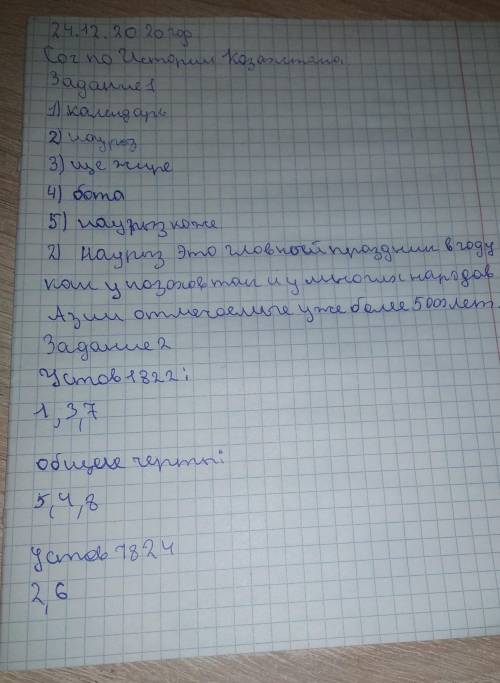 24.12.2020 год
Соч по Истории Казахстана
Задание 1
1) календарь
2) науроз
3) ще жире
4) бата
5) наурыз коже
2) Наурыз это главный праздник в году
как у казахов так и у многих народов
Азии отмечаемые уже более 5000 лет.
Задание 2
Устав 1822:
1, 3, 7
общие черты:
5, 4, 8
Устав 1824
2, 6